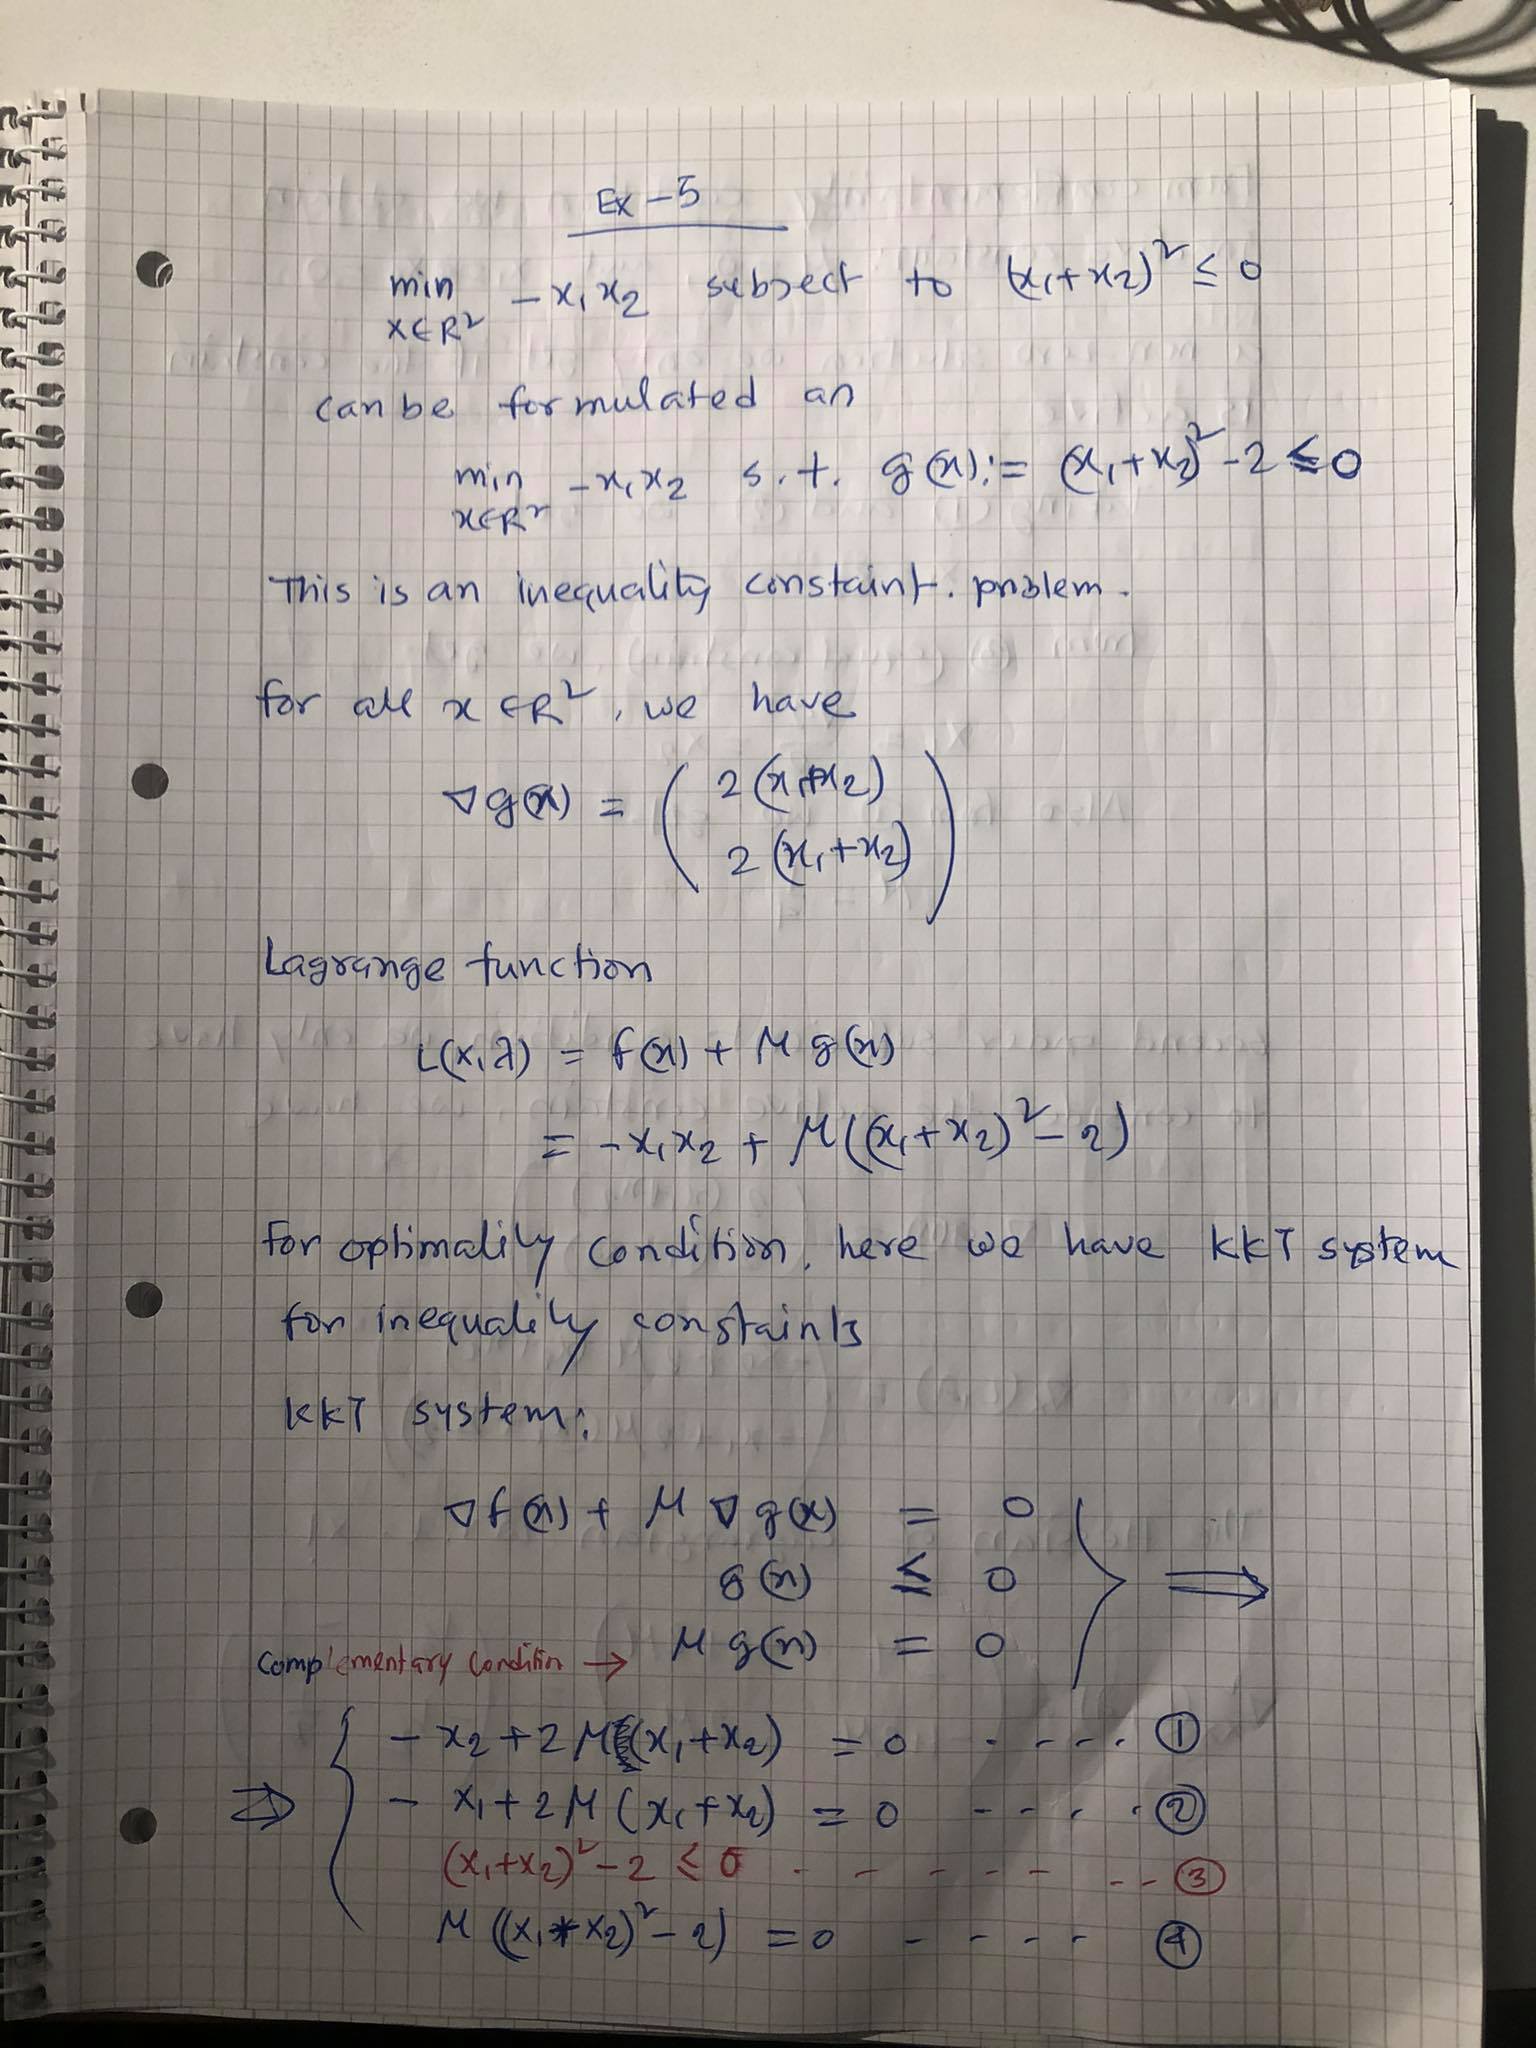 Ex-5
min x∈R² -x₁x₂ subject to (x₁+x₂)² ≤ 0
can be formulated an
min x∈R² -x₁x₂ s.t. g(x):= (x₁+x₂)²-2 ≤ 0
This is an inequality constaint. problem.
for all x ∈R², we have
∇g(x) = ( 2(x₁+x₂)
2(x₁+x₂) )
Lagrange function
L(x,λ) = f(x) + μ g(x)
= -x₁x₂ + μ((x₁+x₂)²-2)
for optimality condition, here we have KKT system
for inequality constaints
KKT system:
∇f(x) + μ ∇g(x) = 0
g(x) ≤ 0
complementary condition → μ g(x) = 0
} ⟹
⇒ { - x₂+2μ(x₁+x₂) = 0 - - - - ①
- x₁+2μ(x₁+x₂) = 0 - - - - ②
(x₁+x₂)²-2 ≤ 0 - - - - - - - ③
μ((x₁+x₂)²-2) = 0 - - - - ④